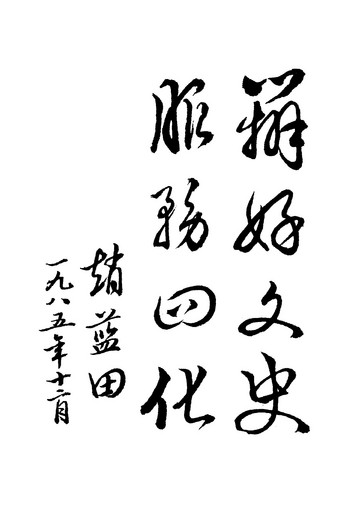 辦好文史
服务四化
趙蓝田
一九八五年十二月